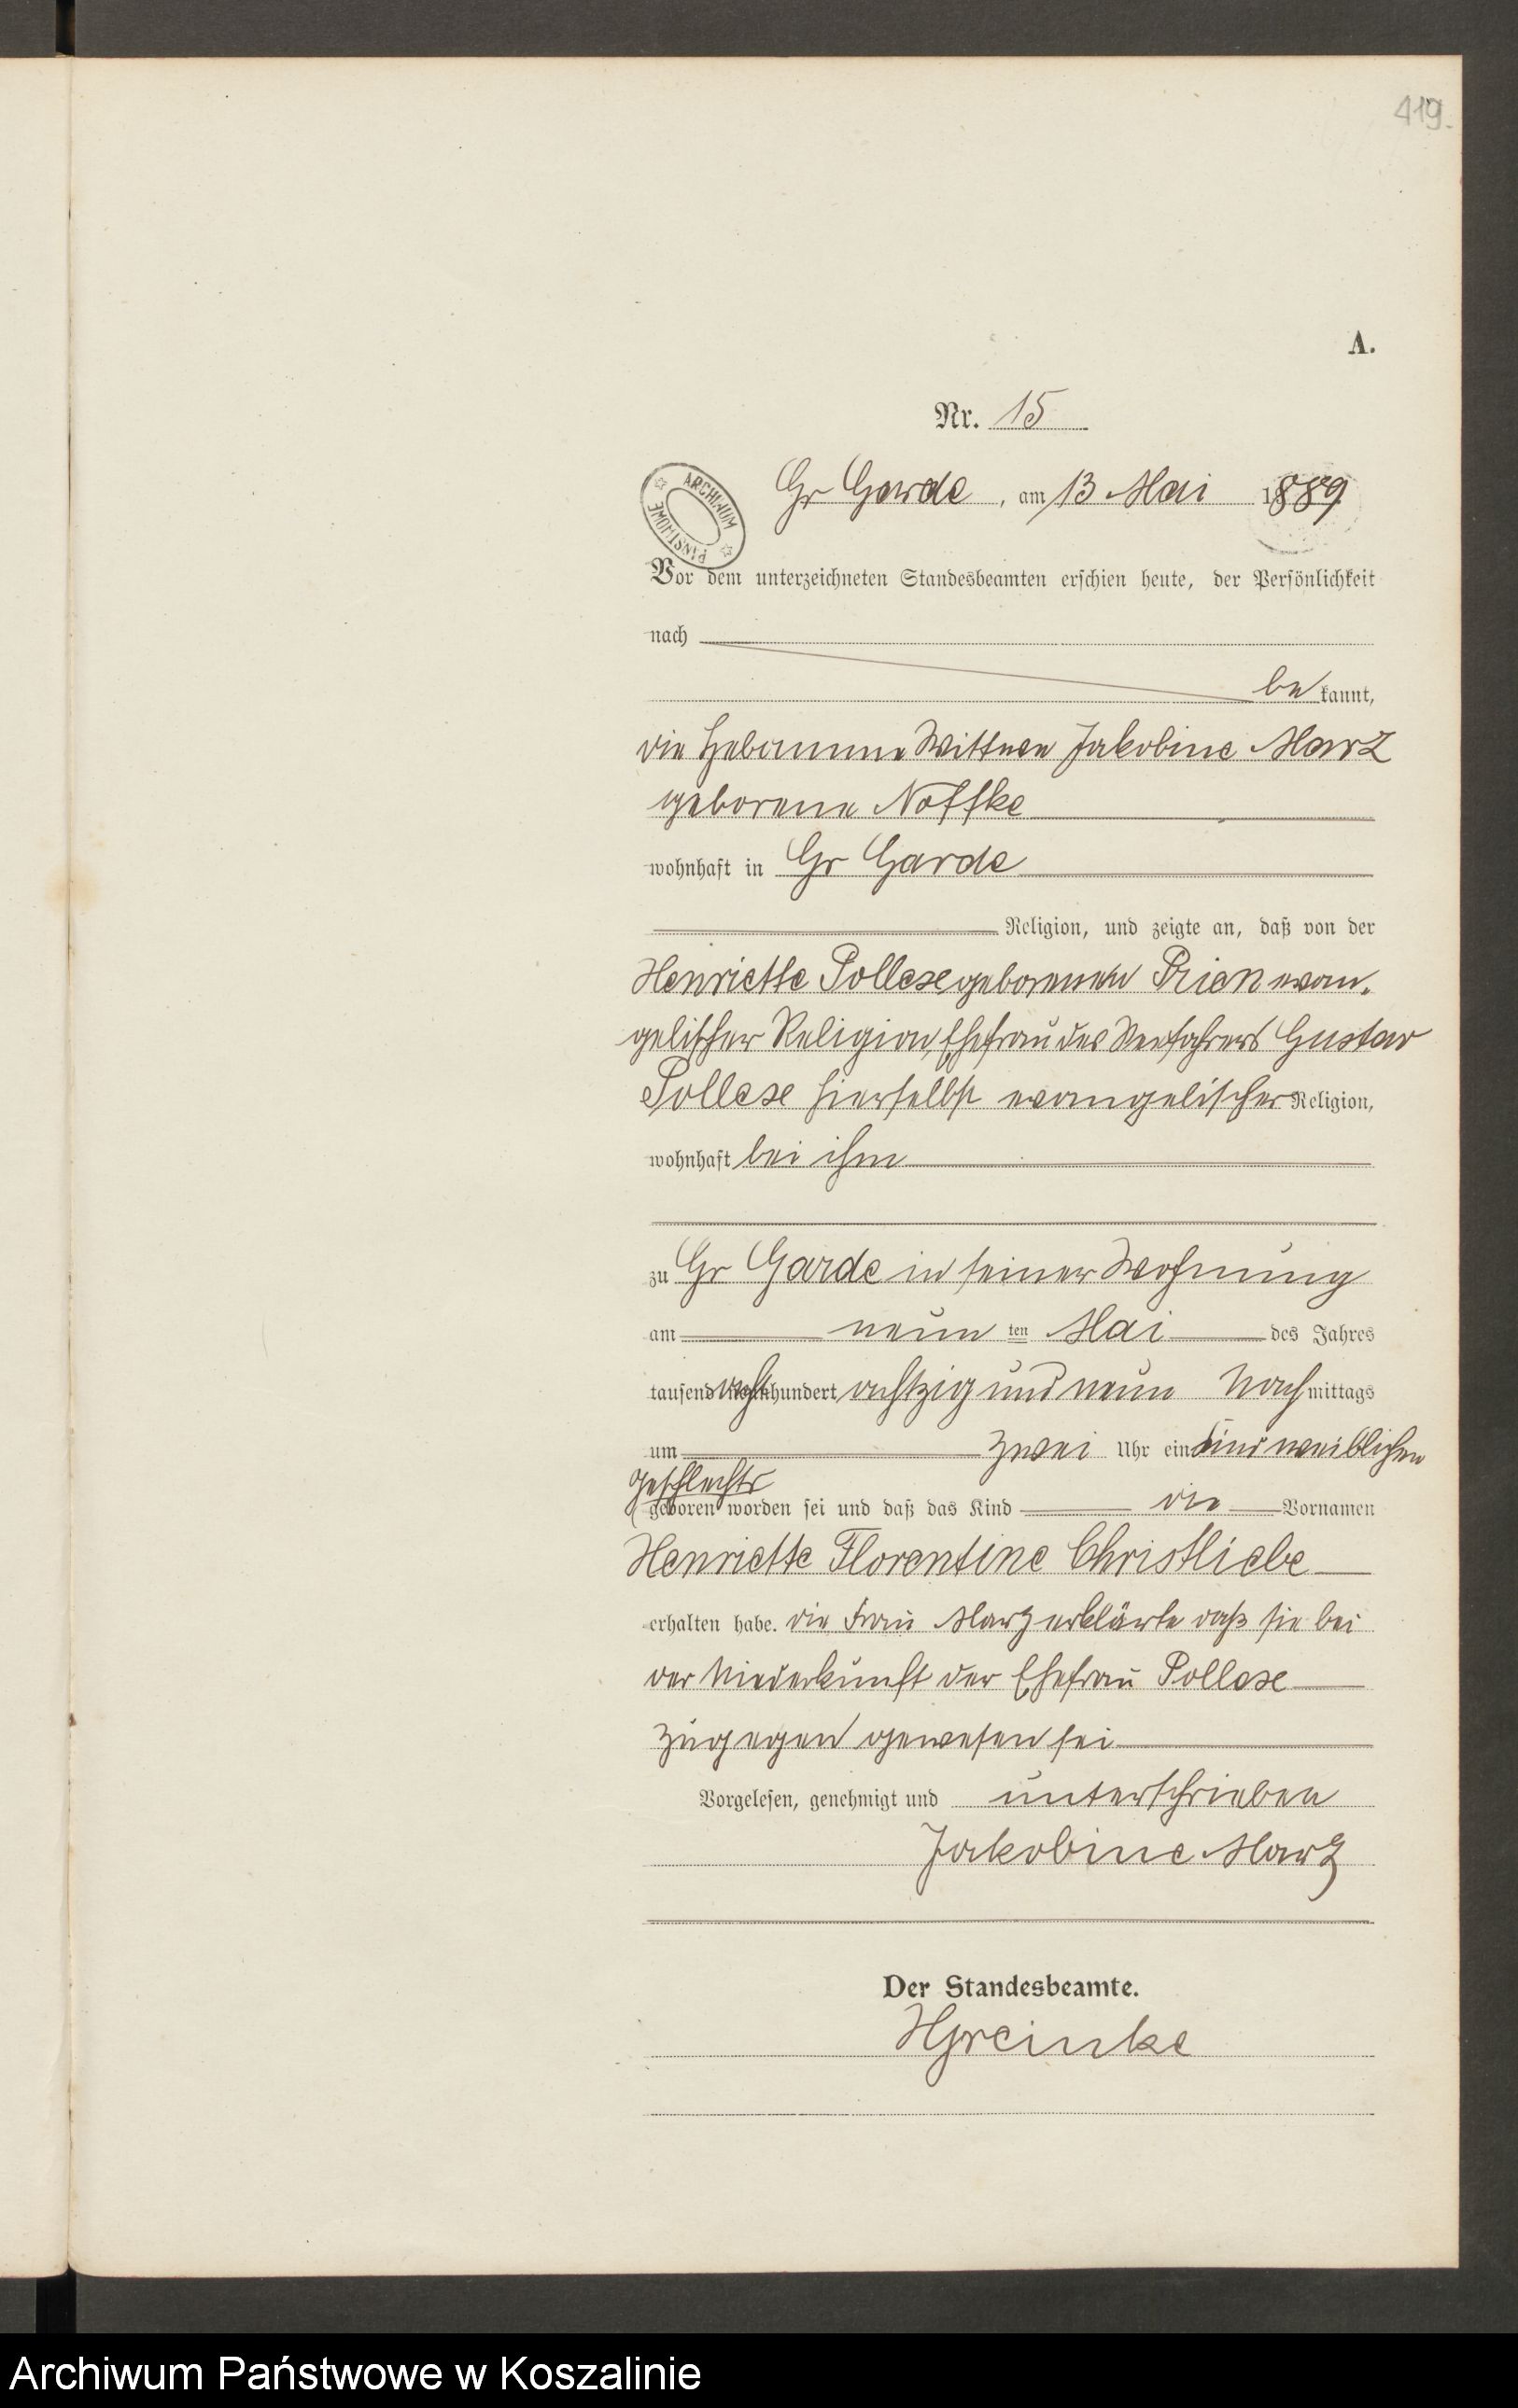 419.
A.
Nr. 15
ARCHIWUM PAŃSTWOWE
Gr Garde, am 13 Mai 1889
Vor dem unterzeichneten Standesbeamten erschien heute, der Persönlichkeit
nach
be kannt,
die Hebamme Wittwe Jakobine Marz
geborene Noffke
wohnhaft in Gr Garde
Religion, und zeigte an, daß von der
Henriette Pollese geborenen Prien evan-
gelischer Religion, Ehefrau des Seefahrers Gustav
Pollese hierselbst evangelischer Religion,
wohnhaft bei ihm
zu Gr Garde in seiner Wohnung
am neun ten Mai des Jahres
tausend acht hundert achtzig und neun Nach mittags
um zwei Uhr ein Kind weiblichen
Geschlechts
geboren worden sei und daß das Kind die Vornamen
Henriette Florentine Christliebe
erhalten habe. die Frau Marz erklärte daß sie bei
der Niederkunft der Ehefrau Pollese
zugegen gewesen sei
Vorgelesen, genehmigt und unterschrieben
Jakobine Marz
Der Standesbeamte.
HGreinke
Archiwum Państwowe w Koszalinie